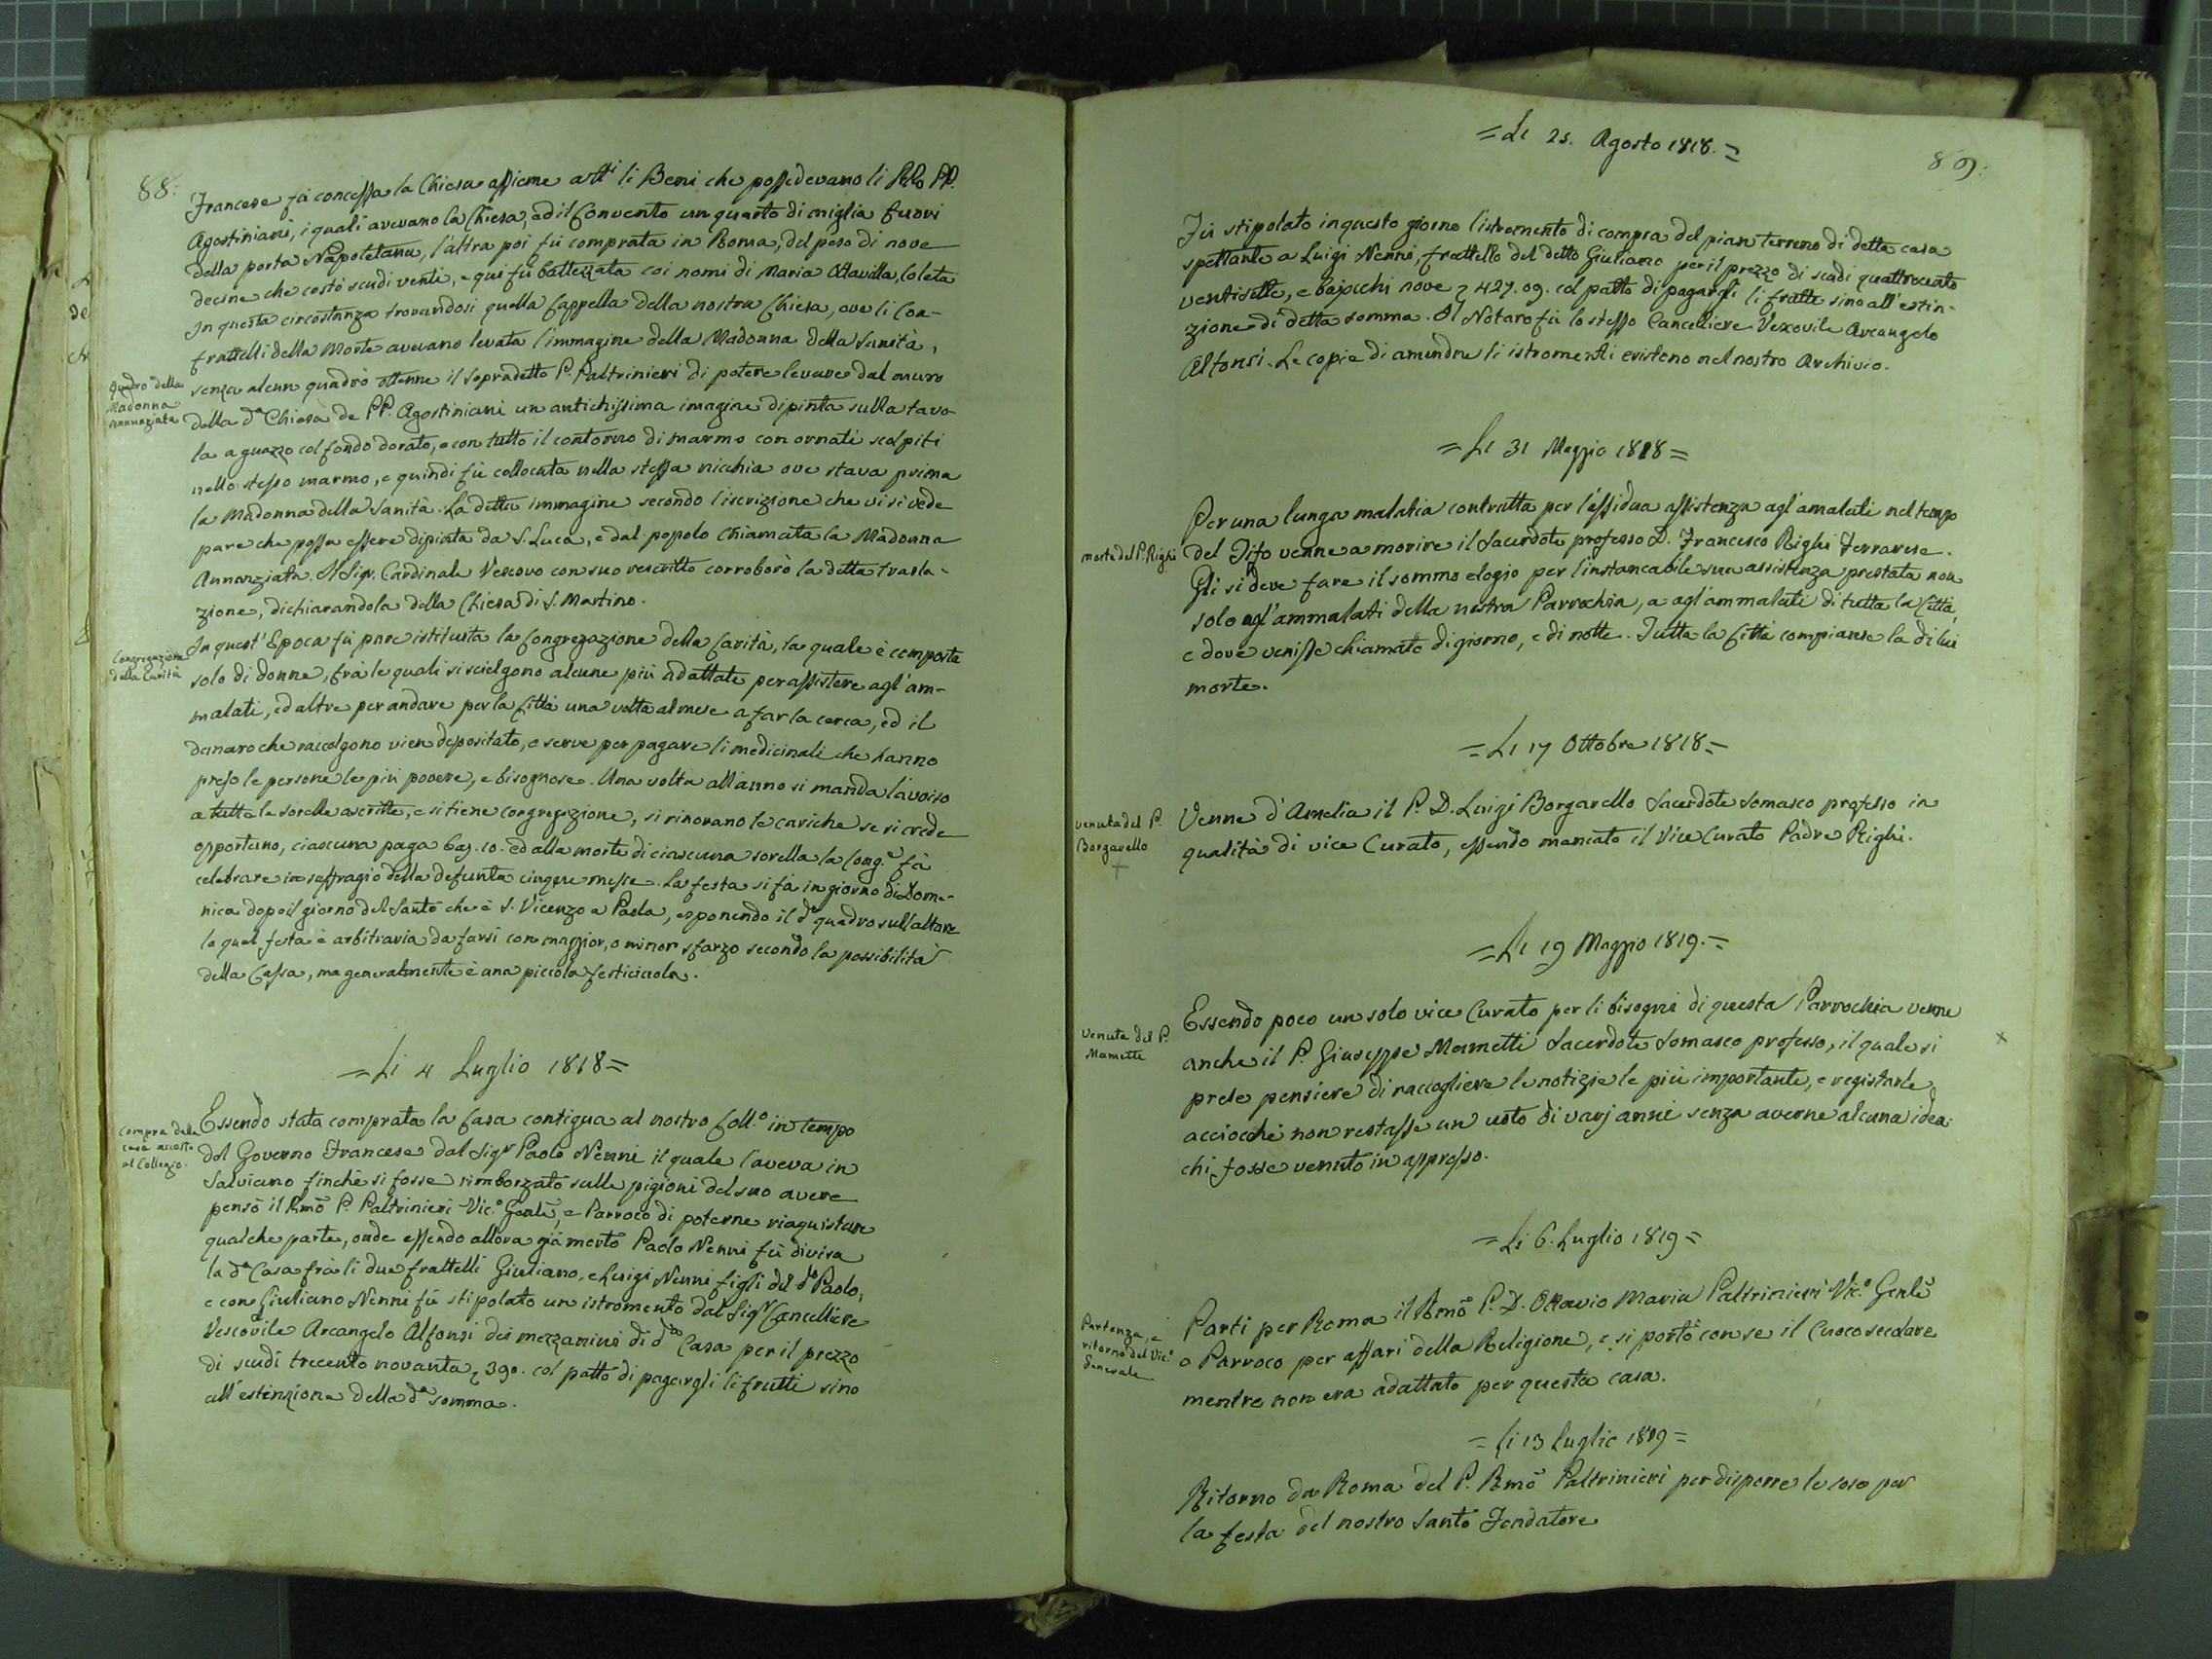 88:
Francese fù concessa la Chiesa assieme a tti li Beni che possedevano li PP.
Agostiniani, i quali avevano la Chiesa, ed il Convento un quarto di miglia fuori
della porta Napoletana, l'altra poi fù comprata in Roma, del peso di nove
decine che costò scudi venti, e qui fù battezzata coi nomi di Maria Ottavilla, Coleta
In questa circostanza trovandosi quella Cappella della nostra Chiesa, ove li Con-
frattelli della Morte avevano levata l'immagine della Madonna della Sanità,
senza alcun quadro ottenne il sopradetto P. Paltrinieri di potere levare dal muro
Quadro della
Madonna
Annunziata
della da Chiesa de PP. Agostiniani un antichissima imagine dipinta sulla tavo-
la a guazzo col fondo dorato, e con tutto il contorno di marmo con ornati scolpiti
nello stesso marmo, e quindi fù collocata nella stessa nicchia ove stava prima
la Madonna della Sanità. La detta immagine secondo l'iscrizione che vi si vede
pare che possa essere dipinta da S. Luca, e dal popolo chiamata la Madonna
Annanziata. Il Sigr. Cardinale Vescovo con suo rescritto corroborò la detta trasla-
zione, dichiarandola della Chiesa di S. Martino.
Congregazione
della Carità
In quest'Epoca fù pure istituita la Congregazione della Carità, la quale è composta
solo di donne, frà le quali si scielgono alcune più adattate per assistere agl'am-
malati, ed altre per andare per la Città una volta al mese a far la cerca, ed il
denaro che raccolgono vien depositato, e serve per pagare li medicinali che hanno
preso le persone le più povere, e bisognose. Una volta all'anno si manda l'avviso
a tutte le sorelle ascritte, e si tiene congregazione, si rinovano le cariche se si crede
opportuno, ciascuna paga baj. 10. ed alla morte di ciascuna sorella la Cong.e fà
celebrare in suffragio della defunta cinque messe. La festa si fà in giorno di Dome-
nica dopo il giorno del Santo che è S. Vicenzo a Paola, esponendo il do quadro sull'altare
la qual festa è arbitraria da farsi con maggior, o minor sfarzo secondo la possibilità
della Cassa, ma generalmente è una piccola festicciola.
= Li 4 Luglio 1818 =
Compra della
casa accosto
al Collegio.
Essendo stata comprata la Casa contigua al nostro Coll.o in tempo
del Governo Francese dal Sigr Paolo Nenni il quale l'aveva in
Salviano finchè si fosse rimborzato sulle pigioni del suo avere
pensò il Rmo P. Paltrinieri Vic.o Genle, e Parroco di poterne riaquistare
qualche parte, onde essendo allora già morto Paolo Nenni fù divisa
la da Casa frà li due frattelli Giuliano, e Luigi Nenni figli del do Paolo,
e con Giuliano Nenni fù stipolato un istromento dal Sigr Cancelliere
Vescovile Arcangelo Alfonsi dei mezzanini di da Casa per il prezzo
di scudi trecento novanta 390. col patto di pagargli li frutti sino
all'estinzione della da somma.
89:
= Li 25. Agosto 1818. =
Fù stipolato in questo giorno l'istromento di compra del pian terreno di detta casa
spettante a Luigi Nenni, frattello del detto Giuliano per il prezzo di scudi quattrocento
ventisette, e bajocchi nove 427.09. col patto di pagargli li frutti sino all'estin-
zione di detta somma. Il Notaro fù lo stesso Cancelliere Vexovile Arcangelo
Alfonsi. Le copie di amendue li istromenti esistono nel nostro Archivio.
= Li 31 Maggio 1818 =
morte del P. Righi
Per una lunga malatia contratta per l'assidua assistenza agl'amalati nel tempo
del Tifo venne a morire il Sacerdote professo D. Francesco Righi Ferrarese.
Gli si deve fare il sommo elogio per l'instancabile sua assistenza prestata non
solo agl'ammalati della nostra Parrochia, a agl'ammalati di tutta la Città,
e dove venisse chiamato di giorno, e di notte. Tutta la Città compianse la di lui
morte.
= Li 17 Ottobre 1818 =
venuta del P.
Borgarello
+
Venne d'Amelia il P. D. Luigi Borgarello Sacerdote Somasco professo in
qualità di vice Curato, essendo mancato il Vice Curato Padre Righi.
= Li 19 Maggio 1819. =
venuta del P.
Mametti
Essendo poco un solo vice Curato per li bisogni di questa Parrochia venne
anche il P. Giuseppe Mametti Sacerdote Somasco professo, il quale si
x
prese pensiere di raccogliere le notizie le più importante, e registarle
acciocchè non restasse un vuoto di varj anni senza averne alcuna idea
chi fosse venuto in appresso.
= Li 6. Luglio 1819 =
Partenza, e
ritorno del Vic.o
Generale
Partì per Roma il Rmo P. D. Ottavio Maria Paltrinieri Vic.o Genle
e Parroco per affari della Religione, e si portò con se il Cuoco secolare
mentre non era adattato per questa casa.
= Li 13 Luglio 1819 =
Ritorno da Roma del P. Rmo Paltrinieri per disporre le cose per
la festa del nostro Santo Fondatore